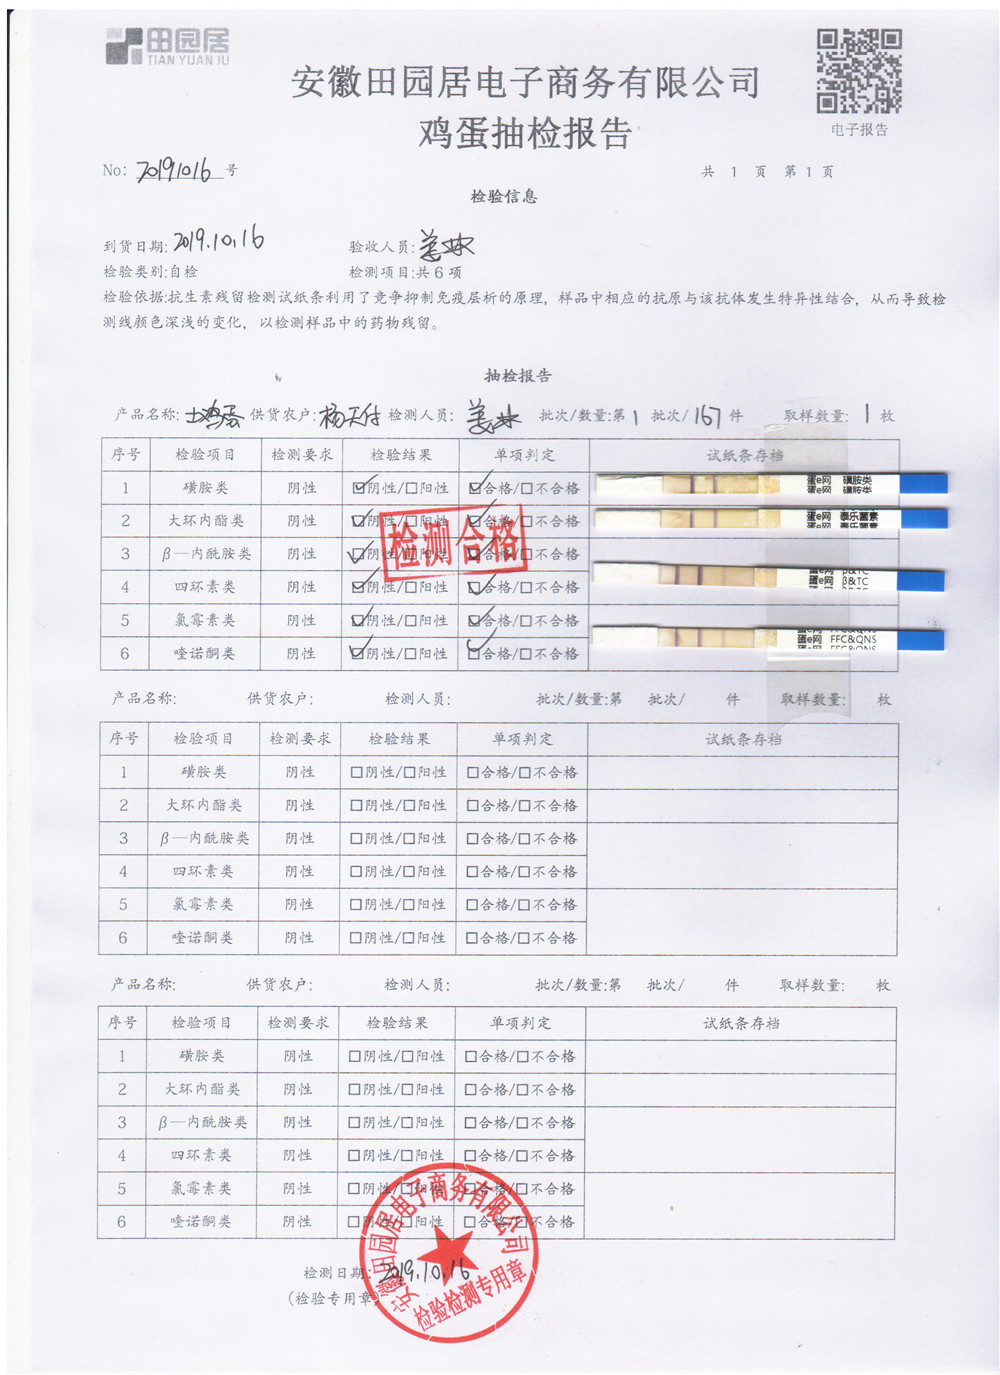 田园居
TIAN YUAN JU
安徽田园居电子商务有限公司
鸡蛋抽检报告
电子报告
No: 20191016 号
共 1 页 第 1 页
检验信息
到货日期: 2019.10.16 验收人员:
检验类别:自检 检测项目:共 6 项
检验依据:抗生素残留检测试纸条利用了竞争抑制免疫层析的原理，样品中相应的抗原与该抗体发生特异性结合，从而导致检
测线颜色深浅的变化，以检测样品中的药物残留。
抽检报告
产品名称: 土鸡蛋 供货农户: 杨天付 检测人员: 批次/数量:第 1 批次/ 167 件 取样数量: 1 枚
序号 检验项目 检测要求 检验结果 单项判定 试纸条存档
1 磺胺类 阴性 ☑阴性/☐阳性 ☑合格/☐不合格 蛋e网 磺胺类
2 大环内酯类 阴性 ☑阴性/☐阳性 ☑合格/☐不合格 蛋e网 泰乐菌素
3 β—内酰胺类 阴性 ☑阴性/☐阳性 ☑合格/☐不合格
检测合格
4 四环素类 阴性 ☑阴性/☐阳性 ☑合格/☐不合格 蛋e网 β&TC
5 氯霉素类 阴性 ☑阴性/☐阳性 ☑合格/☐不合格
6 喹诺酮类 阴性 ☑阴性/☐阳性 ☑合格/☐不合格 蛋e网 FFC&QNS
产品名称: 供货农户: 检测人员: 批次/数量:第 批次/ 件 取样数量: 枚
序号 检验项目 检测要求 检验结果 单项判定 试纸条存档
1 磺胺类 阴性 ☐阴性/☐阳性 ☐合格/☐不合格
2 大环内酯类 阴性 ☐阴性/☐阳性 ☐合格/☐不合格
3 β—内酰胺类 阴性 ☐阴性/☐阳性 ☐合格/☐不合格
4 四环素类 阴性 ☐阴性/☐阳性 ☐合格/☐不合格
5 氯霉素类 阴性 ☐阴性/☐阳性 ☐合格/☐不合格
6 喹诺酮类 阴性 ☐阴性/☐阳性 ☐合格/☐不合格
产品名称: 供货农户: 检测人员: 批次/数量:第 批次/ 件 取样数量: 枚
序号 检验项目 检测要求 检验结果 单项判定 试纸条存档
1 磺胺类 阴性 ☐阴性/☐阳性 ☐合格/☐不合格
2 大环内酯类 阴性 ☐阴性/☐阳性 ☐合格/☐不合格
3 β—内酰胺类 阴性 ☐阴性/☐阳性 ☐合格/☐不合格
4 四环素类 阴性 ☐阴性/☐阳性 ☐合格/☐不合格
5 氯霉素类 阴性 ☐阴性/☐阳性 ☐合格/☐不合格
6 喹诺酮类 阴性 ☐阴性/☐阳性 ☐合格/☐不合格
安徽田园居电子商务有限公司
检验检测专用章
检测日期: 2019.10.16
(检验专用章)